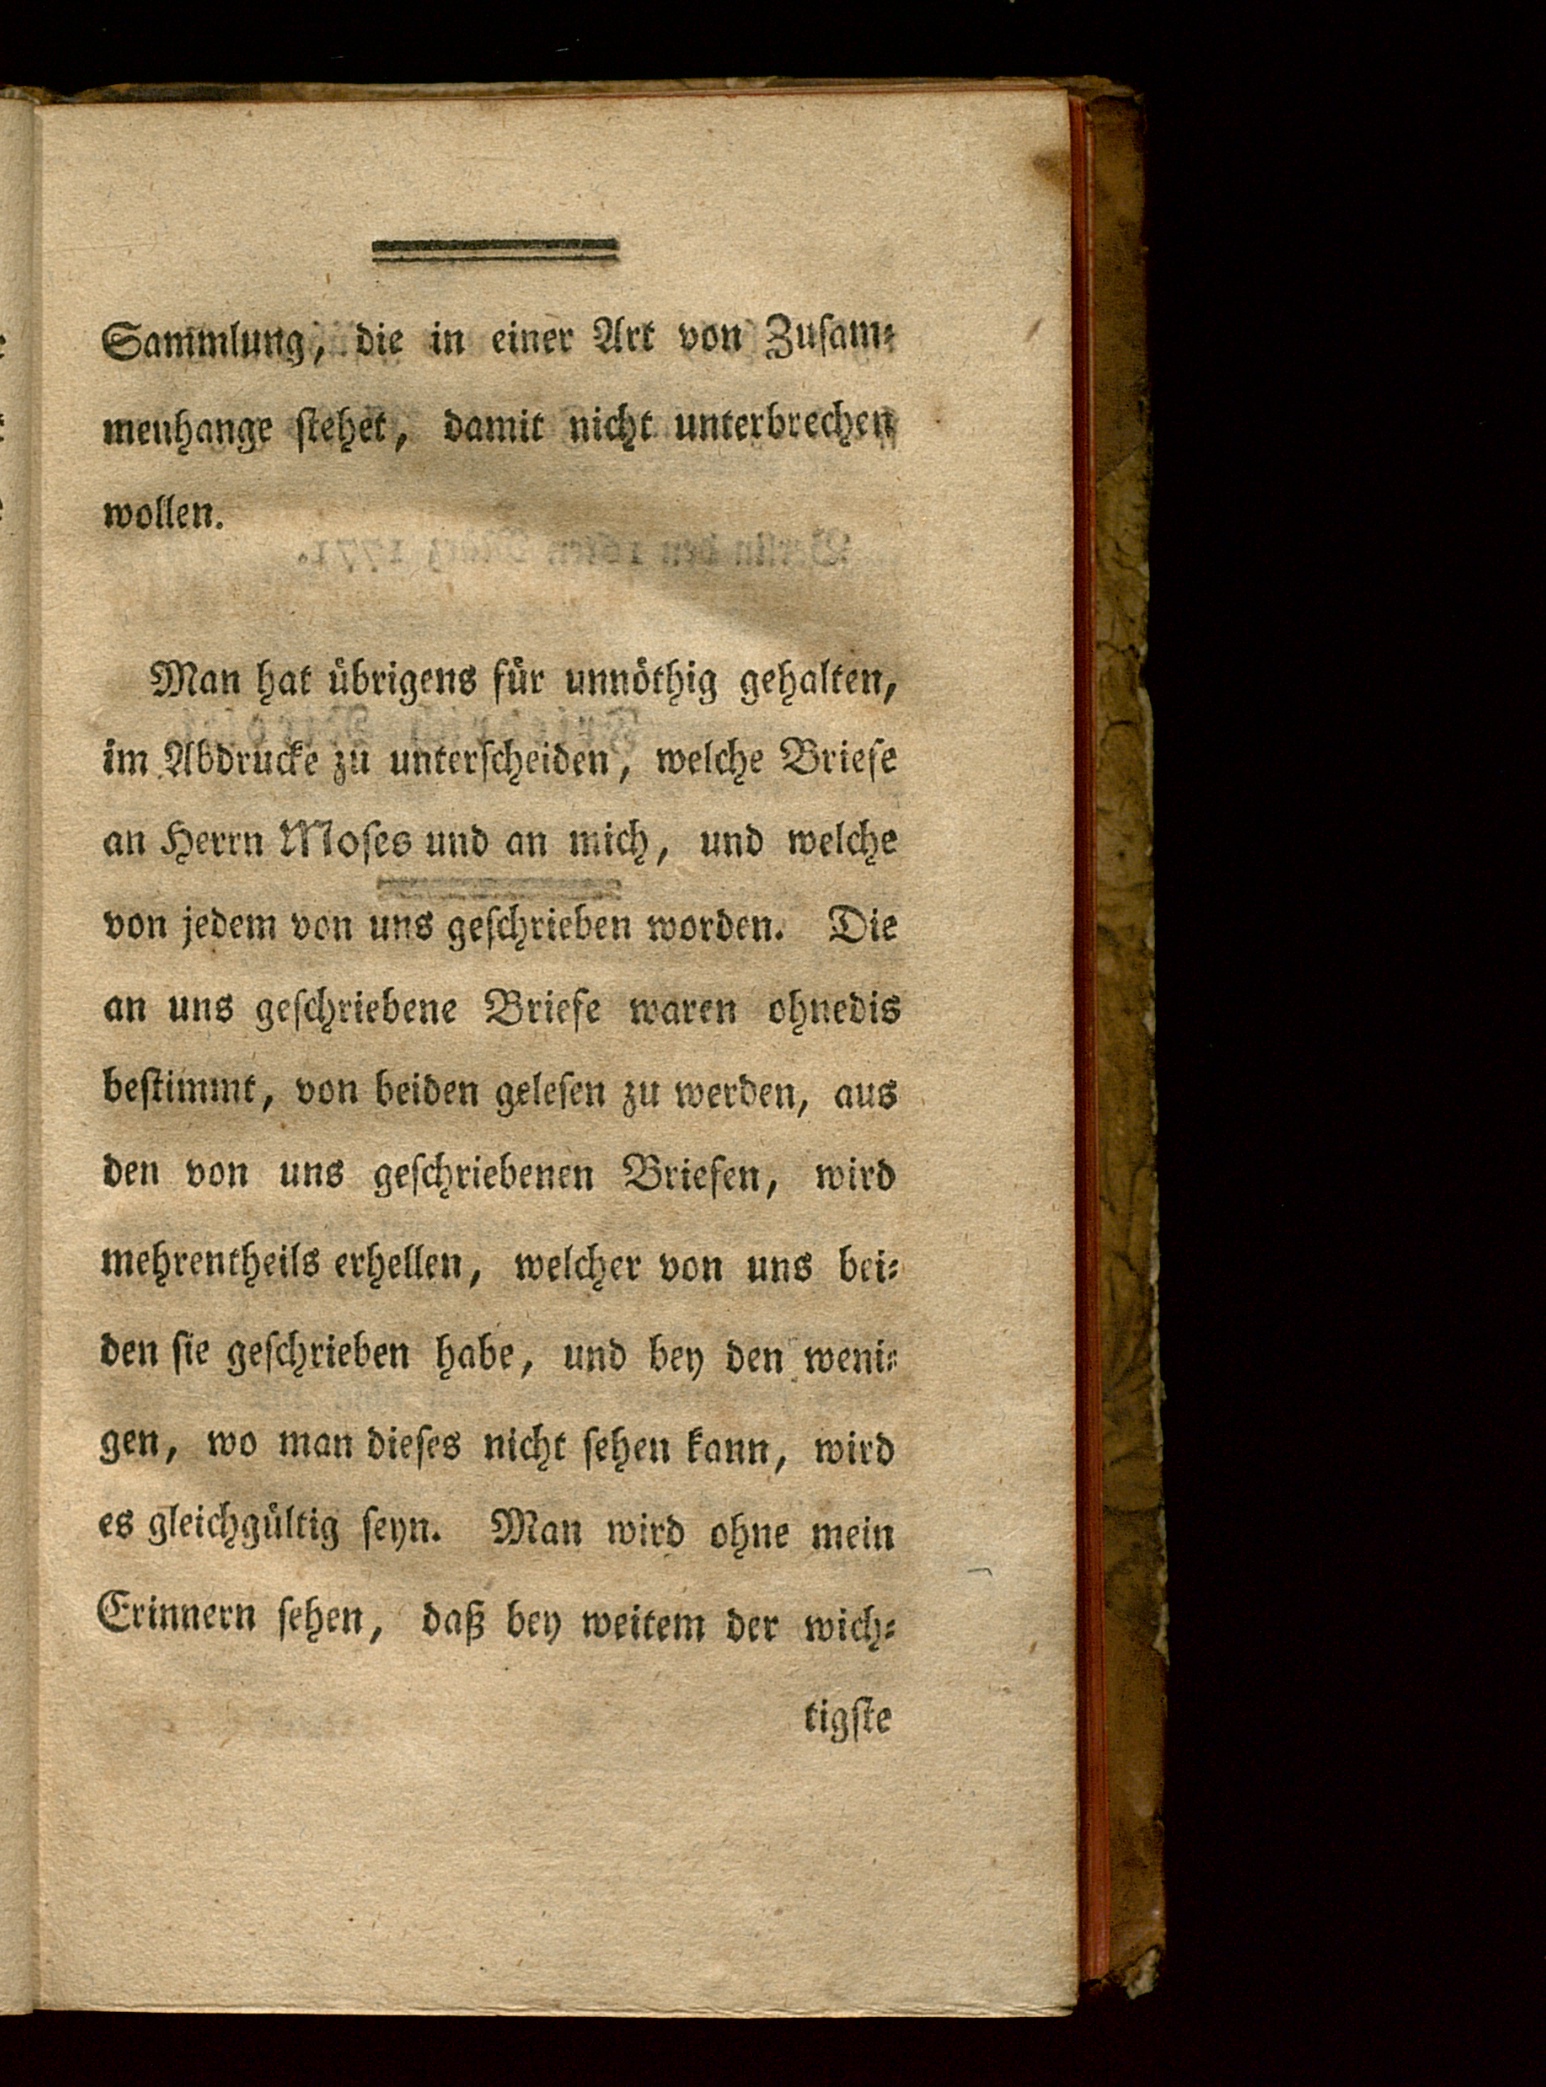 Sammlung, die in einer Art von Zuſam⸗
menhange ſtehet, damit nicht unterbrechen
wollen.
Man hat uͤbrigens fuͤr unnoͤthig gehalten,
im Abdrucke zu unterſcheiden, welche Briefe
an Herrn Moſes und an mich, und welche
von jedem von uns geſchrieben worden. Die
an uns geſchriebene Briefe waren ohnedis
beſtimmt, von beiden geleſen zu werden, aus
den von uns geſchriebenen Briefen, wird
mehrentheils erhellen, welcher von uns bei⸗
den ſie geſchrieben habe, und bey den weni⸗
gen, wo man dieſes nicht ſehen kann, wird
es gleichguͤltig ſeyn. Man wird ohne mein
Erinnern ſehen, daß bey weitem der wich⸗
tigſte